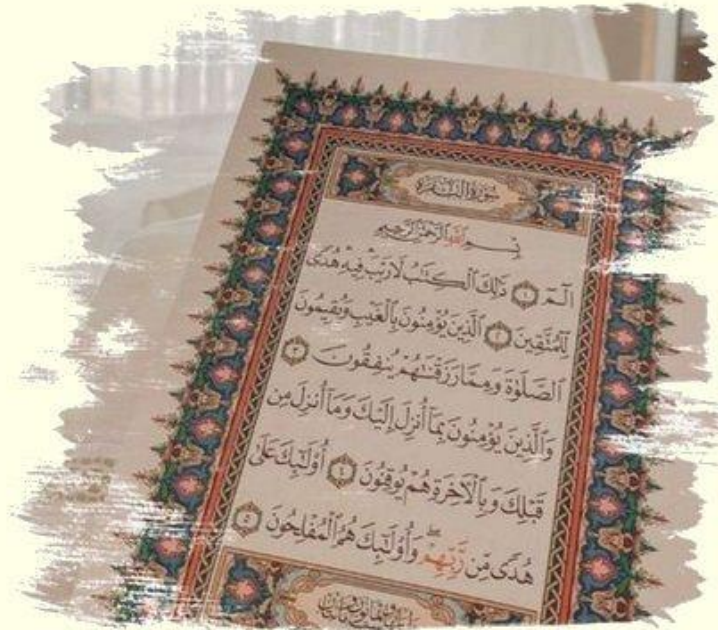 سُورَةُ الْبَقَرَةِ
بِسْمِ اللَّهِ الرَّحْمَٰنِ الرَّحِيمِ
الٓمٓ ١ ذَٰلِكَ الْكِتَابُ لَا رَيْبَ فِيهِ هُدًى
لِّلْمُتَّقِينَ ٢ الَّذِينَ يُؤْمِنُونَ بِالْغَيْبِ وَيُقِيمُونَ
الصَّلَوٰةَ وَمِمَّا رَزَقْنَٰهُمْ يُنفِقُونَ ٣
وَالَّذِينَ يُؤْمِنُونَ بِمَآ أُنزِلَ إِلَيْكَ وَمَآ أُنزِلَ مِن
قَبْلِكَ وَبِالْآخِرَةِ هُمْ يُوقِنُونَ ٤ أُو۟لَٰٓئِكَ عَلَىٰ
هُدًى مِّن رَّبِّهِمْ ۖ وَأُو۟لَٰٓئِكَ هُمُ الْمُفْلِحُونَ ٥